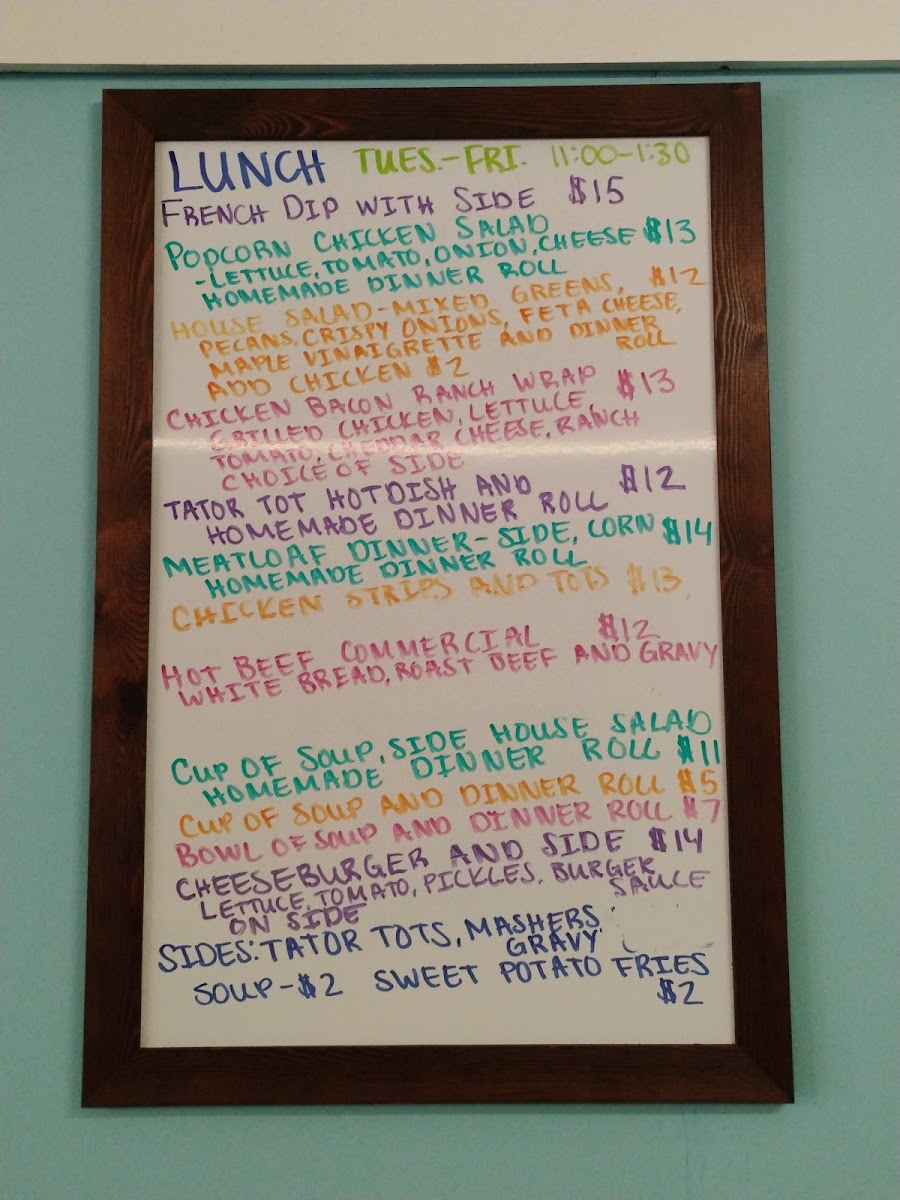 LUNCH TUES.-FRI. 11:00-1:30
FRENCH DIP WITH SIDE $15
POPCORN CHICKEN SALAD
-LETTUCE, TOMATO, ONION, CHEESE $13
HOMEMADE DINNER ROLL
HOUSE SALAD-MIXED GREENS, $12
PECANS, CRISPY ONIONS, FETA CHEESE,
MAPLE VINAIGRETTE AND DINNER
ROLL
ADD CHICKEN $2
CHICKEN BACON RANCH WRAP $13
GRILLED CHICKEN, LETTUCE,
TOMATO, CHEDDAR CHEESE, RANCH
CHOICE OF SIDE
TATOR TOT HOTDISH AND $12
HOMEMADE DINNER ROLL
MEATLOAF DINNER-SIDE, CORN $14
HOMEMADE DINNER ROLL
CHICKEN STRIPS AND TOTS $13
HOT BEEF COMMERCIAL $12
WHITE BREAD, ROAST BEEF AND GRAVY
CUP OF SOUP, SIDE HOUSE SALAD
HOMEMADE DINNER ROLL $11
CUP OF SOUP AND DINNER ROLL $5
BOWL OF SOUP AND DINNER ROLL $7
CHEESEBURGER AND SIDE $14
LETTUCE, TOMATO, PICKLES, BURGER
SAUCE
ON SIDE
SIDES: TATOR TOTS, MASHERS
GRAVY
SOUP-$2 SWEET POTATO FRIES
$2